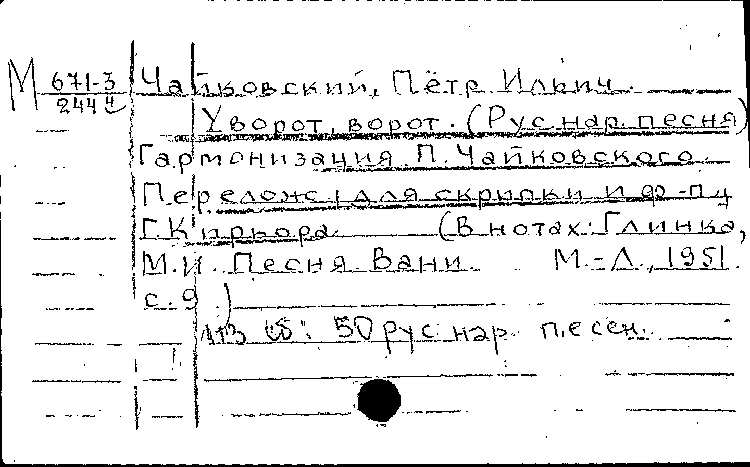 М 671-3 Чайковский, Пётр Ильич.
2444
У ворот, ворот. (Рус. нар. песня)
Гармонизация П. Чайковского.
Перелож. для скрипки и ф.-п.
Г. Киркора. (В нотах: Глинка,
М.И. Песня Вани. М.-Л., 1951.
с. 9.)
Из сб: 50 рус. нар. песен.